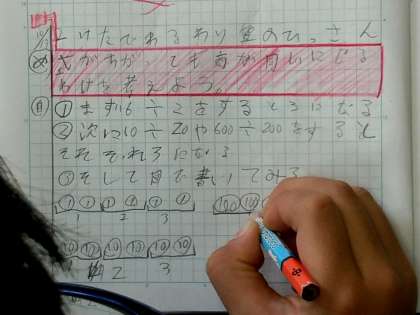 2けたでわるわり算のひっさん
め 式がちがっても商が同じになる
わけを考えよう。
自 ①まず6÷2をすると3になる
②次に60÷20や600÷200をすると
それぞれ3になる
③そして図で書いてみる
①① ①① ①① 100
1 2 3
⑩⑩ ⑩⑩ ⑩⑩
2 3